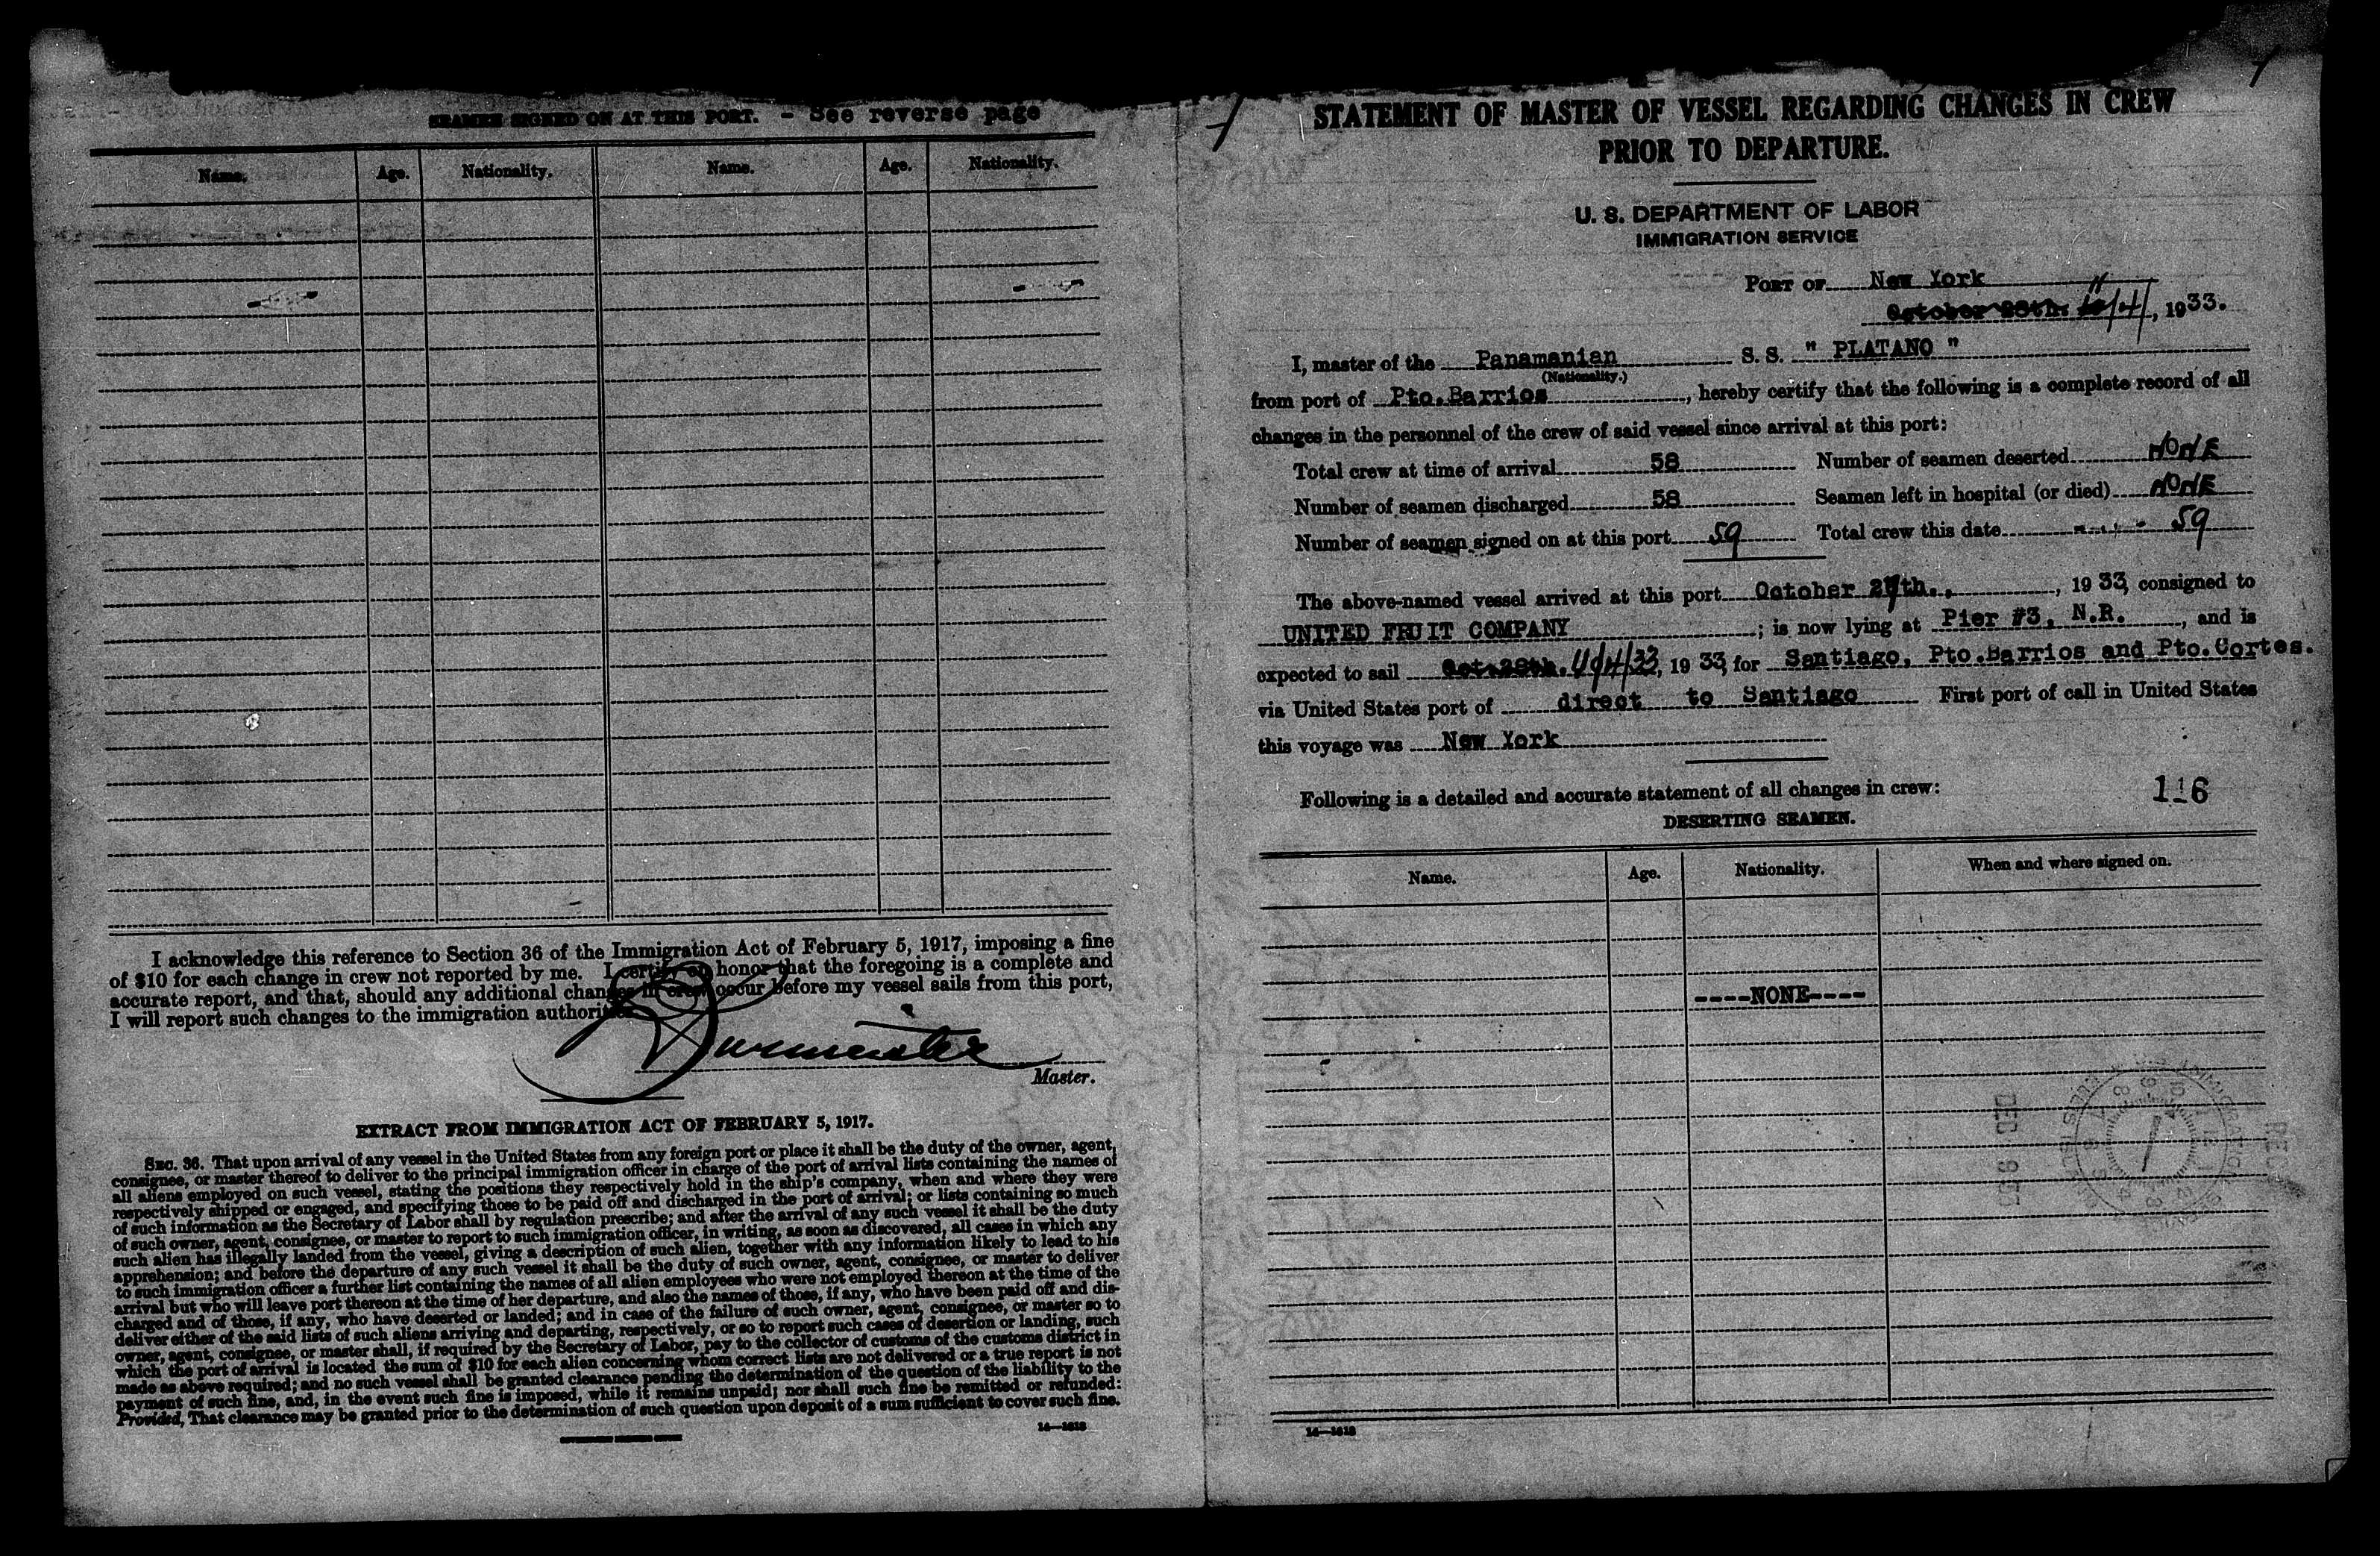 SEAMEN SIGNED ON AT THIS PORT. - See reverse page
Name. Age. Nationality. Name. Age. Nationality.
I acknowledge this reference to Section 36 of the Immigration Act of February 5, 1917, imposing a fine
of $10 for each change in crew not reported by me. I certify on honor that the foregoing is a complete and
accurate report, and that, should any additional changes in crew occur before my vessel sails from this port,
I will report such changes to the immigration authorities.
Burmeister
Master.
EXTRACT FROM IMMIGRATION ACT OF FEBRUARY 5, 1917.
SEC. 36. That upon arrival of any vessel in the United States from any foreign port or place it shall be the duty of the owner, agent,
consignee, or master thereof to deliver to the principal immigration officer in charge of the port of arrival lists containing the names of
all aliens employed on such vessel, stating the positions they respectively hold in the ship's company, when and where they were
respectively shipped or engaged, and specifying those to be paid off and discharged in the port of arrival; or lists containing so much
of such information as the Secretary of Labor shall by regulation prescribe; and after the arrival of any such vessel it shall be the duty
of such owner, agent, consignee, or master to report to such immigration officer, in writing, as soon as discovered, all cases in which any
such alien has illegally landed from the vessel, giving a description of such alien, together with any information likely to lead to his
apprehension; and before the departure of any such vessel it shall be the duty of such owner, agent, consignee, or master to deliver
to such immigration officer a further list containing the names of all alien employees who were not employed thereon at the time of the
arrival but who will leave port thereon at the time of her departure, and also the names of those, if any, who have been paid off and dis-
charged and of those, if any, who have deserted or landed; and in case of the failure of such owner, agent, consignee, or master so to
deliver either of the said lists of such aliens arriving and departing, respectively, or so to report such cases of desertion or landing, such
owner, agent, consignee, or master shall, if required by the Secretary of Labor, pay to the collector of customs of the customs district in
which the port of arrival is located the sum of $10 for each alien concerning whom correct lists are not delivered or a true report is not
made as above required; and no such vessel shall be granted clearance pending the determination of the question of the liability to the
payment of such fine, and, in the event such fine is imposed, while it remains unpaid; nor shall such fine be remitted or refunded:
Provided, That clearance may be granted prior to the determination of such question upon deposit of a sum sufficient to cover such fine.
14—1618
STATEMENT OF MASTER OF VESSEL REGARDING CHANGES IN CREW
PRIOR TO DEPARTURE.
U. S. DEPARTMENT OF LABOR
IMMIGRATION SERVICE
PORT OF New York
October 28th. 11/4/, 1933.
I, master of the Panamanian S. S. " PLATANO "
(Nationality.)
from port of Pto.Barrios, hereby certify that the following is a complete record of all
changes in the personnel of the crew of said vessel since arrival at this port:
Total crew at time of arrival 58 Number of seamen deserted NONE
Number of seamen discharged 58 Seamen left in hospital (or died) NONE
Number of seamen signed on at this port 59 Total crew this date 59
The above-named vessel arrived at this port October 27th., 1933, consigned to
UNITED FRUIT COMPANY; is now lying at Pier #3, N.R., and is
expected to sail Oct.28th. 11/4/33, 1933, for Santiago, Pto.Barrios and Pto.Cortes.
via United States port of direct to Santiago First port of call in United States
this voyage was New York
Following is a detailed and accurate statement of all changes in crew:
116
DESERTING SEAMEN.
Name. Age. Nationality. When and where signed on.
----NONE----
14—1618